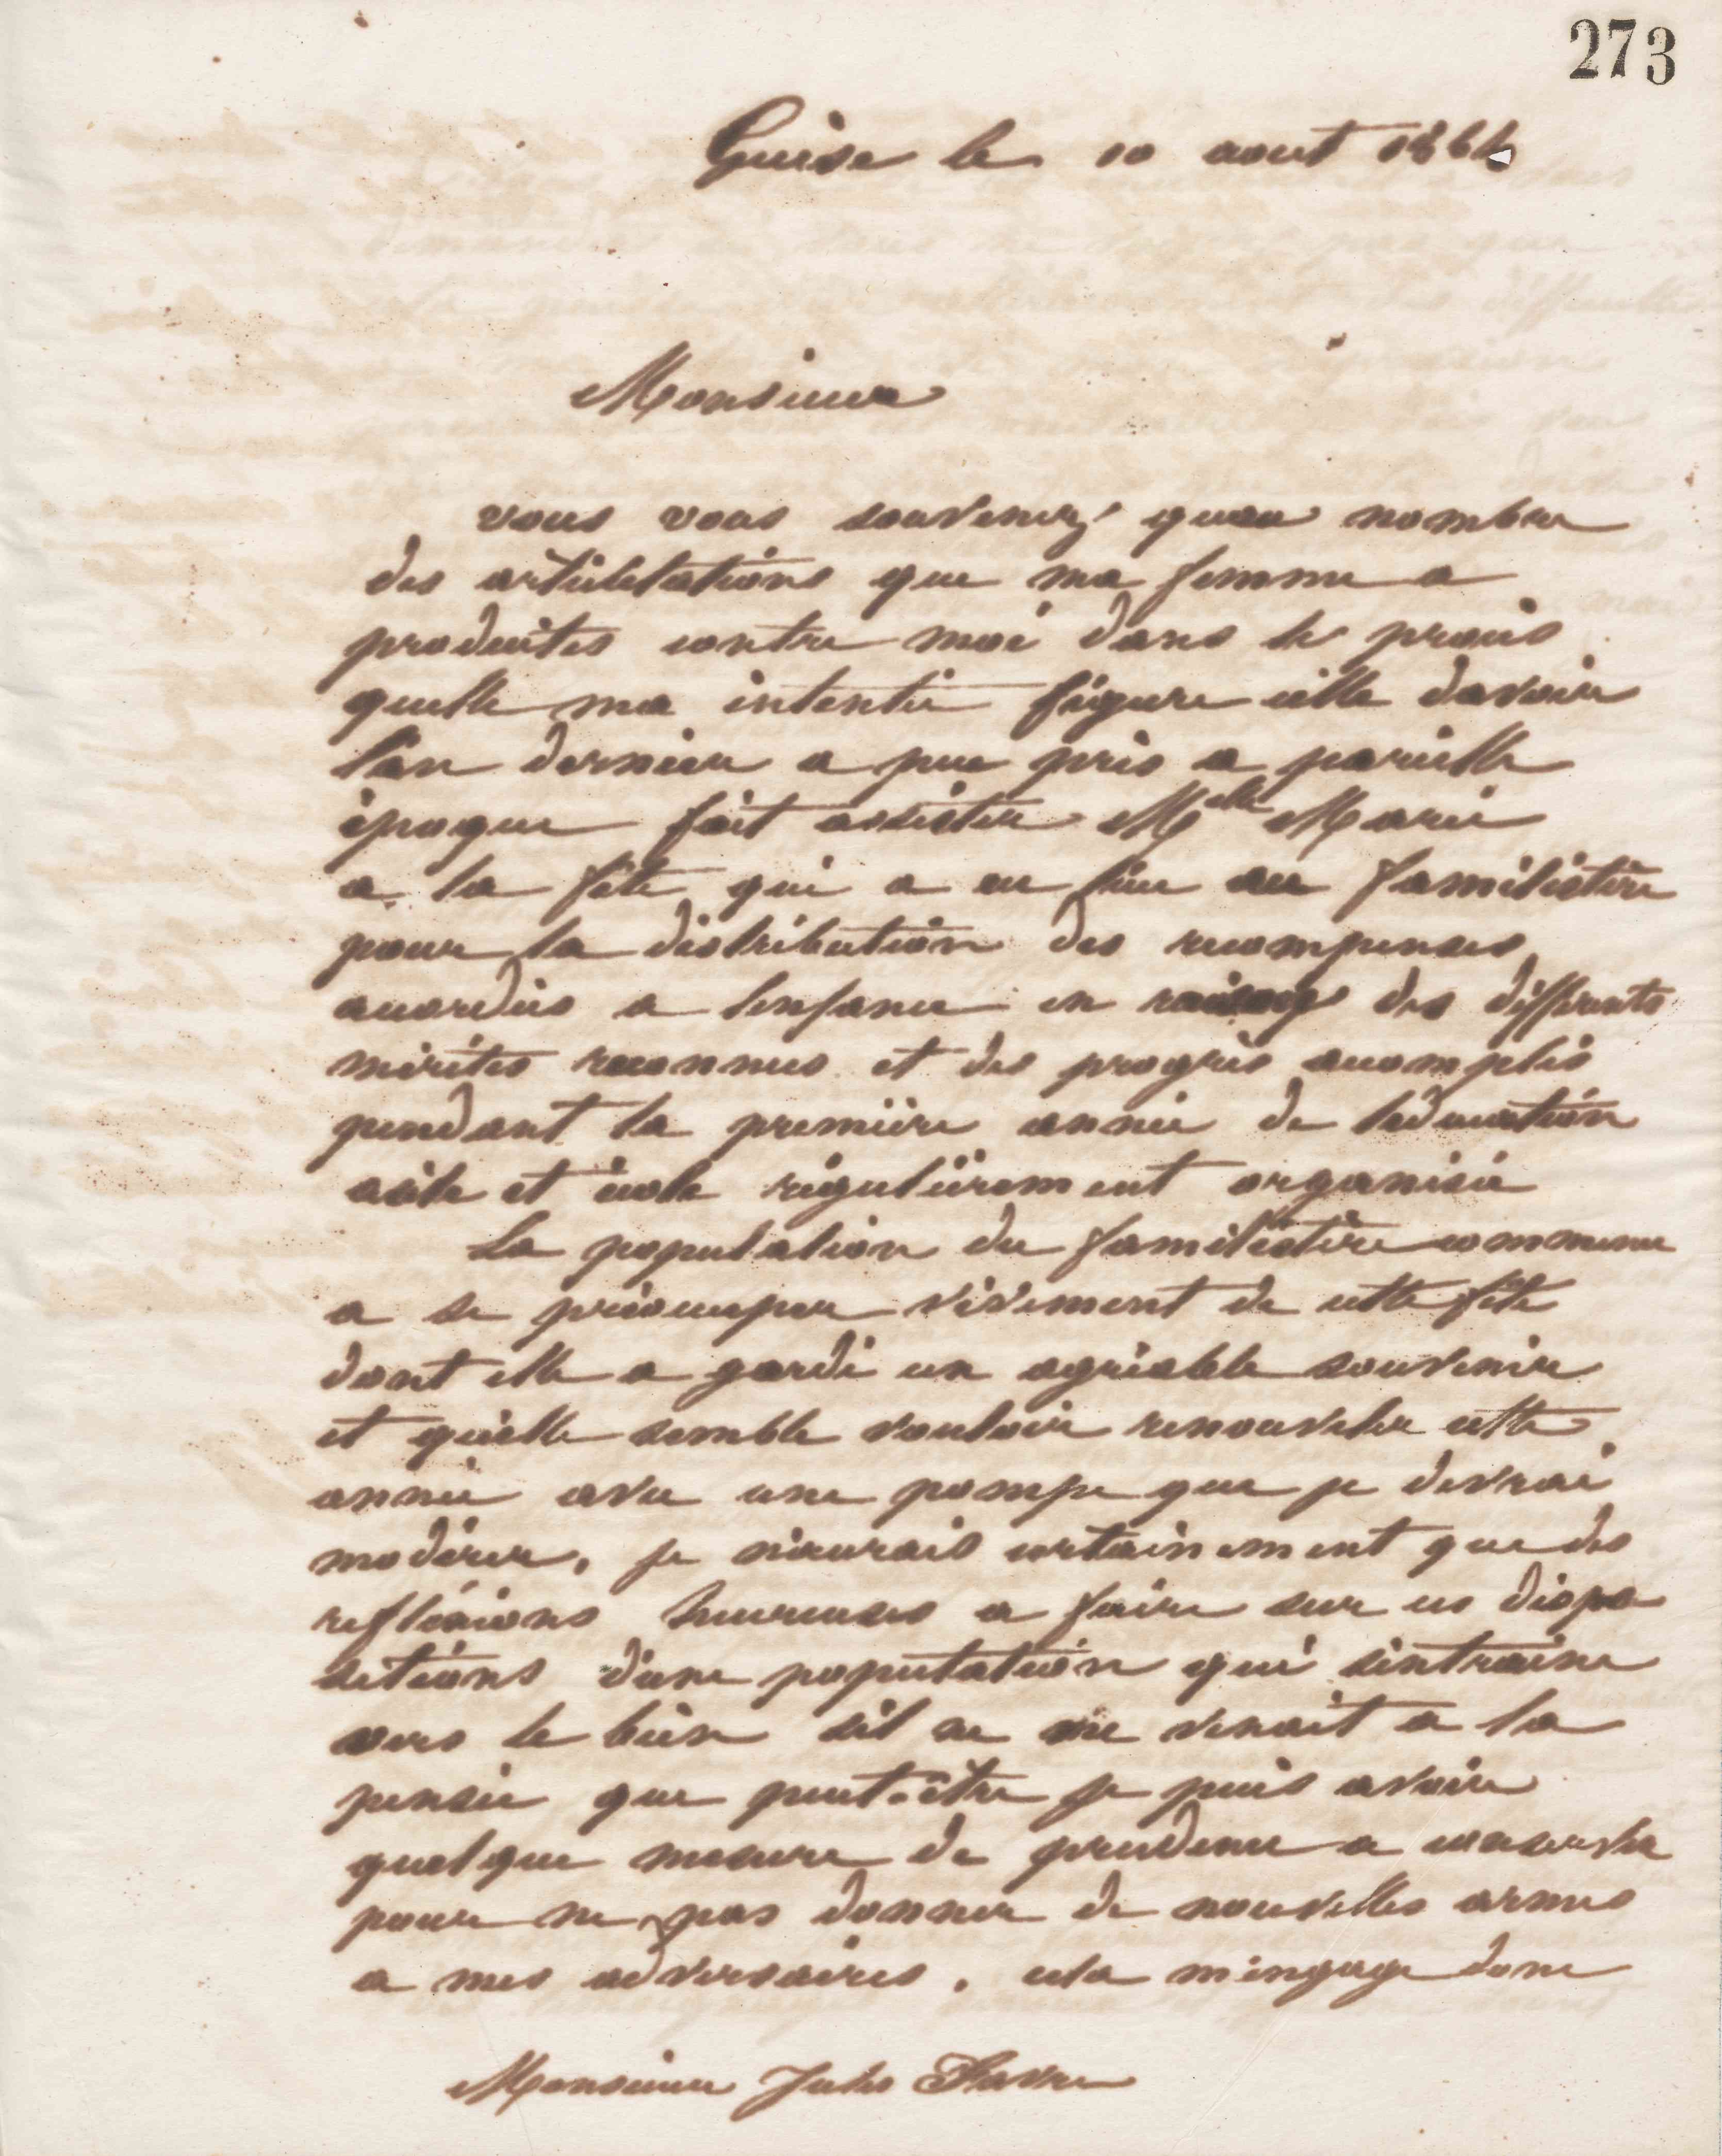 273
Guise le 10 aout 1864
Monsieur
vous vous souvenez quau nombre
des articulations que ma femme a
produites contre moi dans le procès
quelle ma intenter figure celle davoir
l'an dernier a peu près a pareille
époque fait assister Melle Marie
a la fête qui a eu lieu au familistère
pour la distribution des recompenses
accordées a lenfance en raison des différents
mérites reconnus et des progrès accomplis
pendant la première année de léducation
asile et école régulièrement organisée
La population du familistère commence
a se préoccuper vivement de cette fête
dont elle a gardé un agréable souvenir
et qu'elle semble vouloir renouveler cette
année avec une pompe que je devrai
modérer, je n'aurais certainement que des
refléxions heureuses a faire sur ces dispo
sitions d'une population qui s'entraine
vers le bien s'il ne me venait a la
pensée que peut-être je puis avoir
quelque mesure de prudence a conserver
pour ne pas donner de nouvelles armes
a mes adversaires. cela m'engage donc
Monsieur Jules Favre